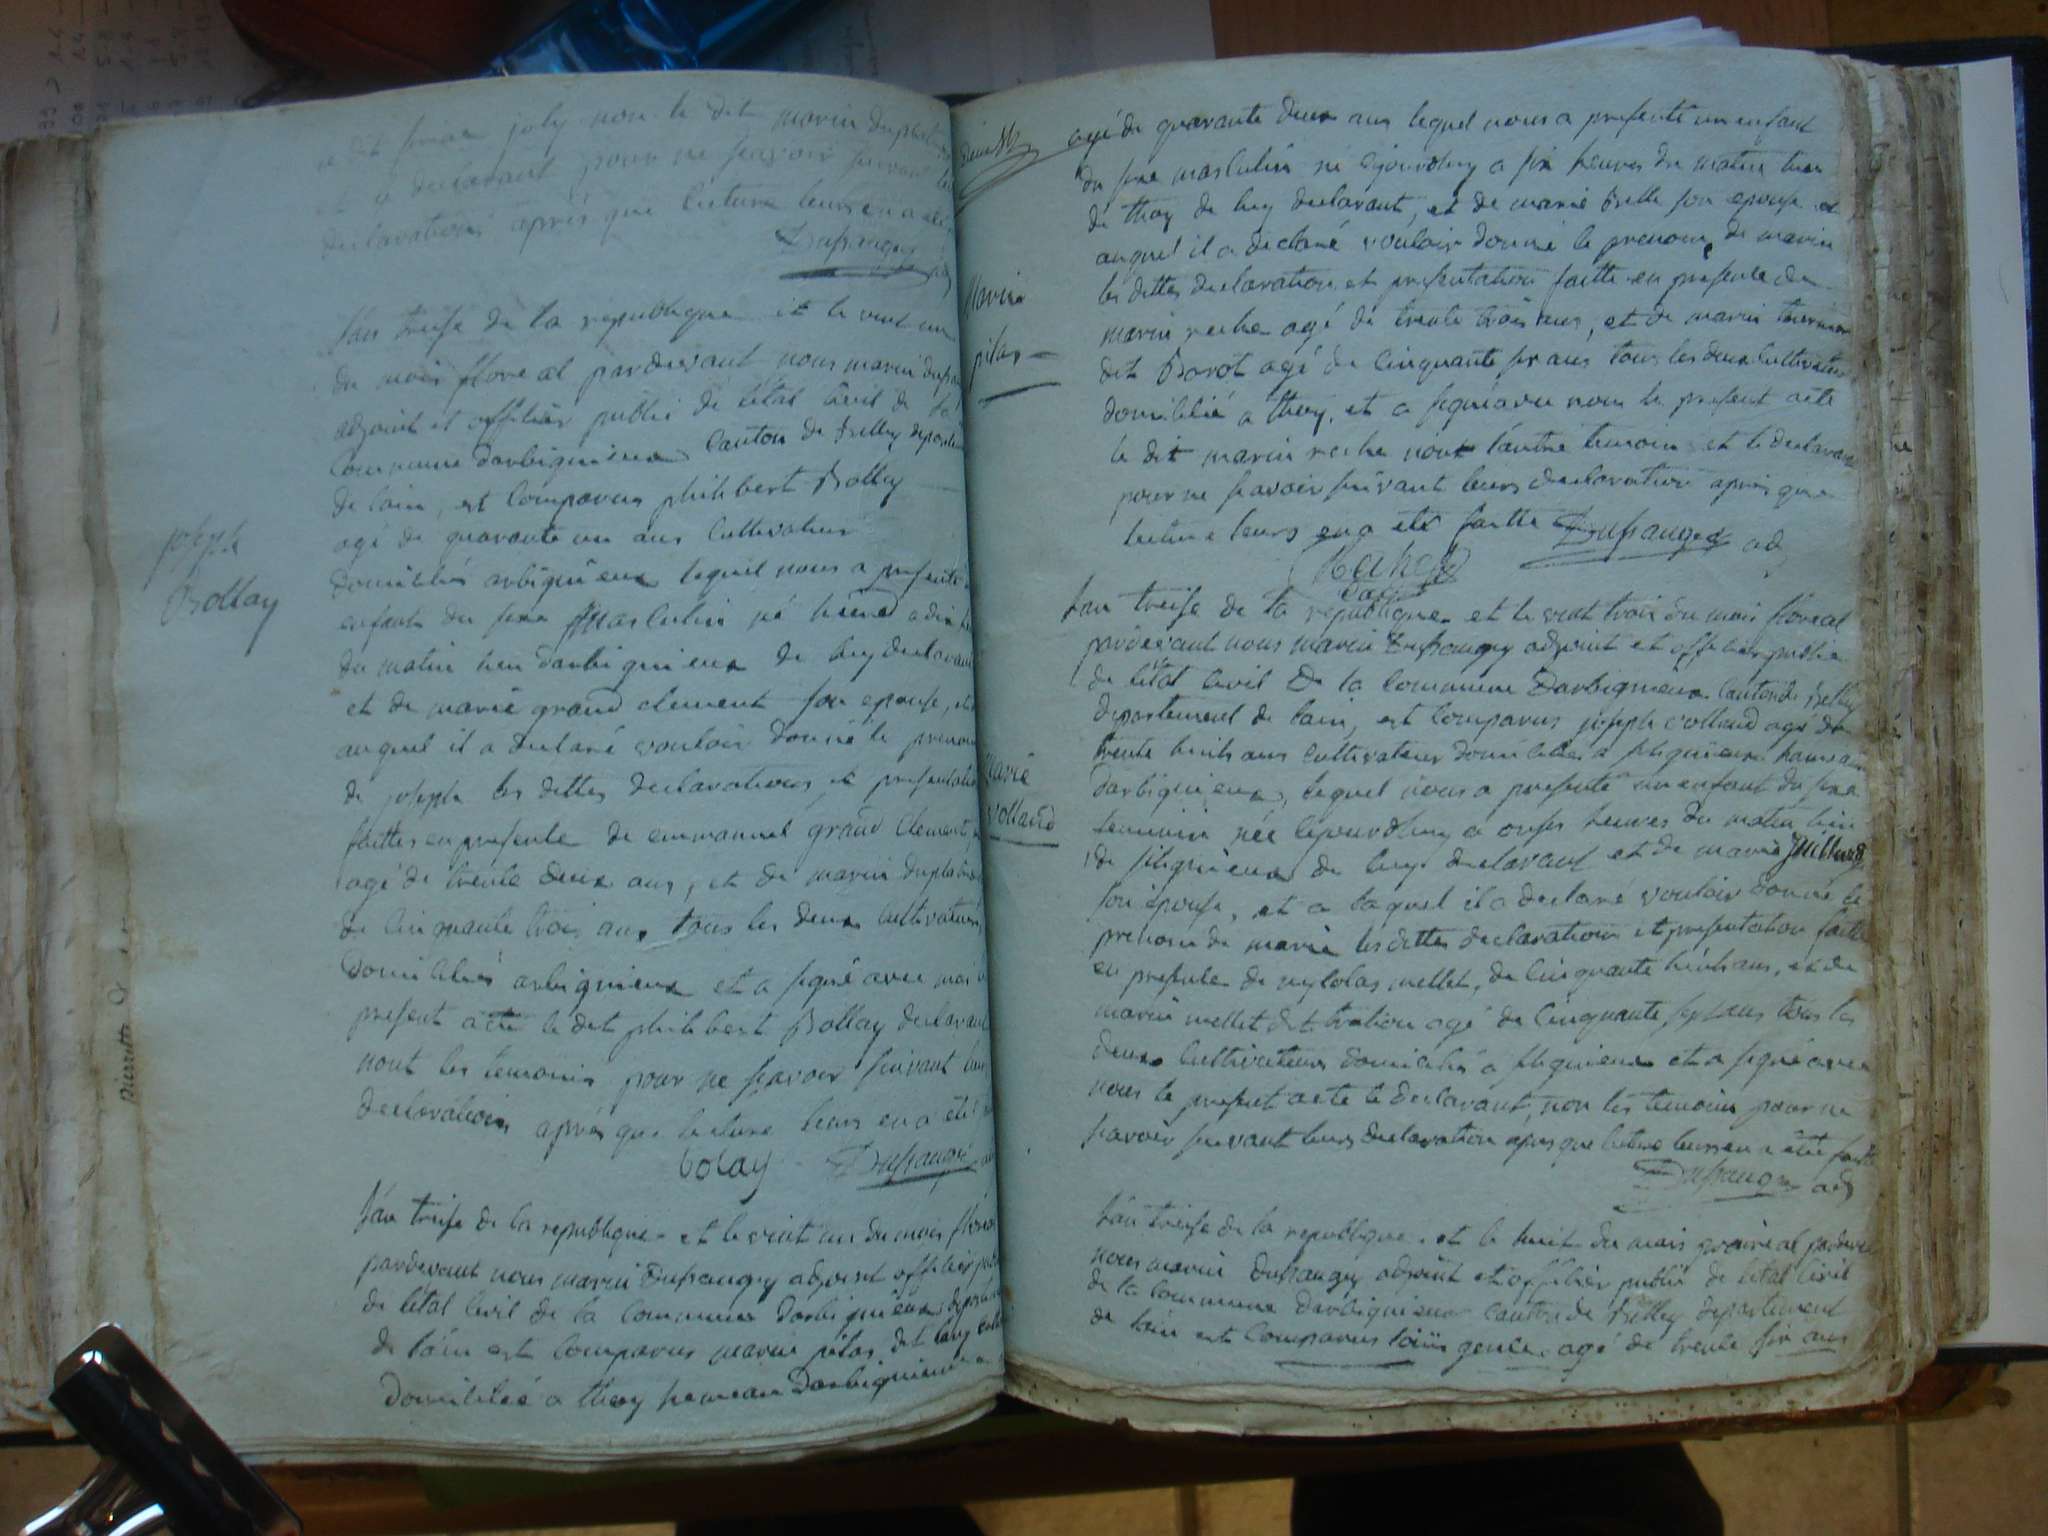 dit joly non le dit marin duplat
et declarant pour ne scavoir suivant
declarations après que lecture leurs en a été
Dufraugey
joseph
Bollay
l'an treise de la republique et le vint un
du mois floreal pardevant nous marin
adjoint et officier public de l'état civil de la
commune darbignieux canton de Belley
de l'ain, est comparus philibert Bollay
agé de quarante un ans cultivateur
domicilié arbignieux lequel nous a presenté
enfant du sexe Masculin né hierd a dix
du matin lieu darbignieux de luy declarant
et de marie grand clement son epouse, et
auquel il a declaré vouloir donné le prenom
de joseph les dittes declarations et presentation
faittes en presence de emmanuel grand clement,
agé de trente deux ans, et de marin duplat
de cinquante trois ans tous les deux cultivateurs
domiciliés arbignieux et a signé avec moi le
present acte le dit philibert Bollay declarant
nont les temoins pour ne scavoir suivant leur
declaration après que lecture leurs en a été
bolay Dufraugé
l'an treise de la republique et le vint un du mois floreal
pardevant nous marin Dufraugey adjoint officier
de l'état civil de la commune darbignieux
de l'ain est comparus marin pilas dit
domicilié a thoy hameau darbignieux
agé de quarante deux ans lequel nous a presenté un enfant
du sexe masculin né ajourdhuy a six heures du matin lieu
de thoy de luy declarant, et de marie Belle son epouse et
auquel il a declaré vouloir donné le prenom de marin
les dittes declaration et presentation faitte en presence de
marin reche agé de trente trois ans, et de marin
dit Borot agé de cinquante six ans tous les deux cultivateur
domicilié a thoy, et a signé avec nous le present acte
le dit marin reche nont l'autre temoin et le declarant
pour ne scavoir suivant leurs declaration après que
lecture leurs en a été faitte Dufraugey ad
Marin
pilas
l'an treise de la republique et le vint trois du mois floreal
pardevant nous marin Dufraugey adjoint et officier public
de l'état civil de la commune darbignieux canton de Belley
departement de l'ain, est comparus joseph volland agé de
trente huit ans cultivateur domicilié a silignieux hameau
darbignieux, lequel nous a presenté un enfant du sexe
feminin née ajourdhuy a onses heures du matin lieu
de silignieux de luy declarant et de marie
son epouse, et a laquel il a declaré vouloir donné le
prenom de marie les dittes declaration et presentation faitte
en presence de nycolas mellet, de cinquante huit ans, et de
marin mellet dit agé de cinquante sept ans tous les
deux cultivateurs domicilié a silignieux et a signé avec
nous le present acte le declarant, non les temoins pour ne
scavoir suivant leurs declaration après que lecture leurs en a été faitte
Dufraugey ad
Marie
volland
l'an treise de la republique et le huit du mois prairéal pardevant
nous marin Dufraugey adjoint et officier public de l'état civil
de la commune darbignieux canton de Belley departement
de l'ain est comparus loüis agé de trente six ans